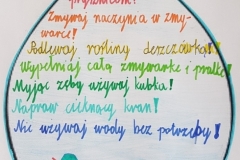 prysznicem!
Zmywaj naczynia w zmy-
warce!
Podlewaj rośliny deszczówką!
Wypełniaj całą zmywarkę i pralkę!
Myjąc zęby używaj kubka!
Napraw cieknący kran!
Nie używaj wody bez potrzeby!